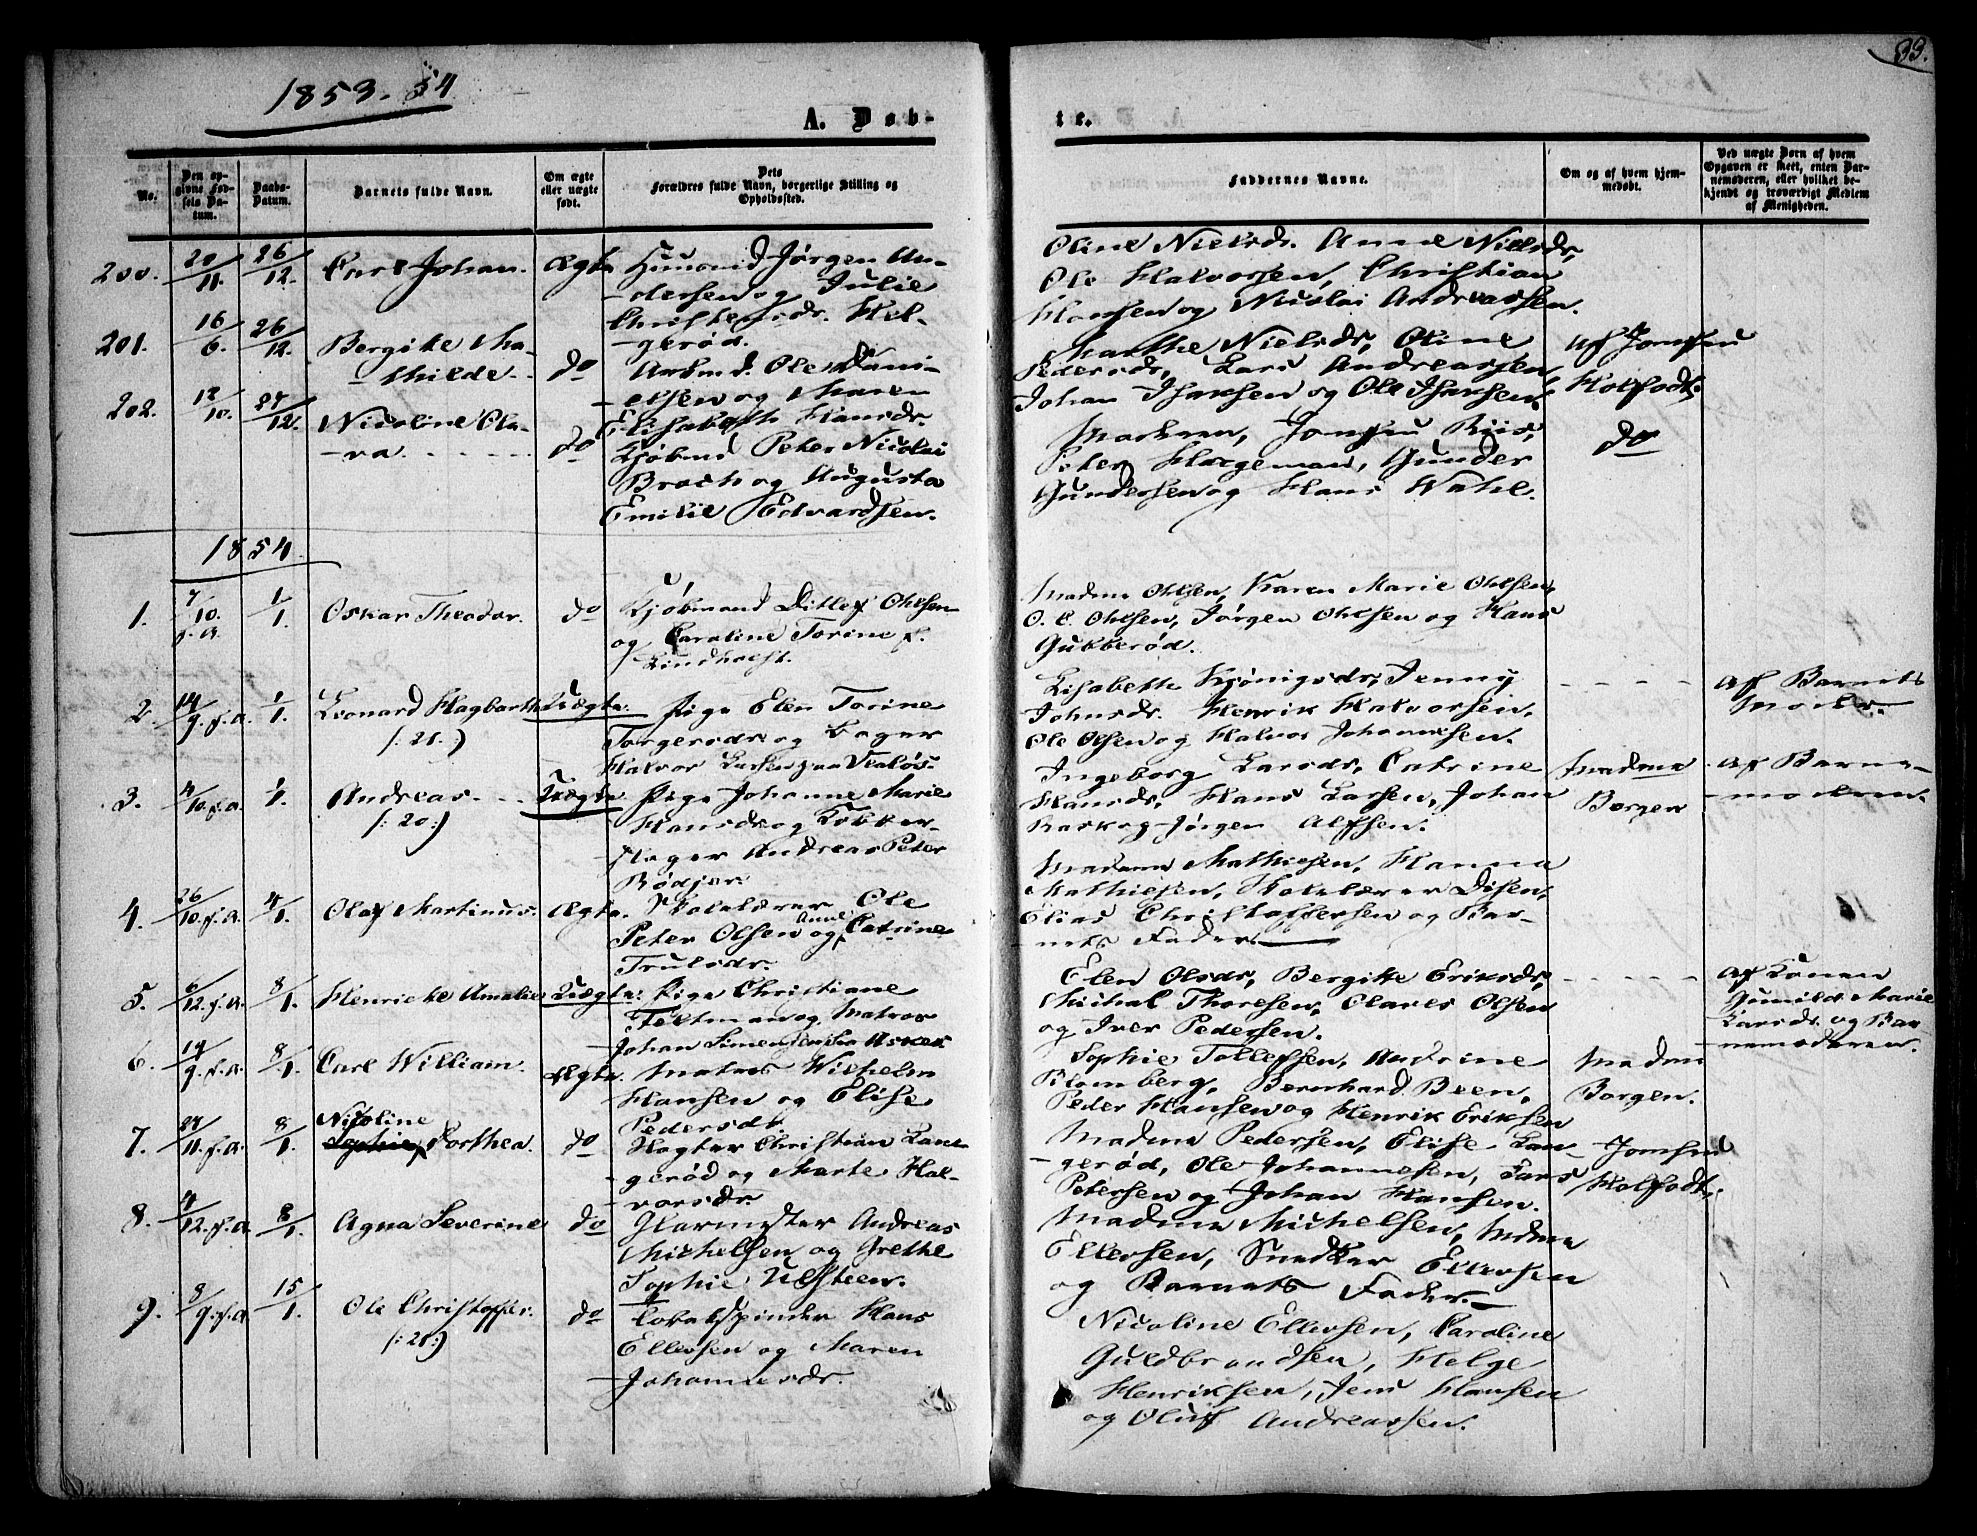 1853-54
33.
A. Døb-
te.
No.
Den opgivne Fødsels Datum.
Daabs-Datum.
Barnets fulde Navn.
Om ægte eller uægte født.
Dets Forældres fulde Navn, borgerlige Stilling og Opholdssted.
Faddernes Navne.
Om og af hvem hjemmedøbt.
Ved uægte Børn af hvem Opgaven er skeet, enten Barnemoderen, eller hvilket bekjendt og troværdigt Medlem af Menigheden.
200. 20/11. 26/12. Carl Johan. Ægte Huusmd Jørgen An-
dersen og Julie
Christensdr. Hel-
gerød.
Oline Nielsdr. Anne Nielsdr,
Ole Halvorsen, Christian
Hansen og Nicolai Andreassen.
201. 16/6. 26/12. Bergitte Ma-
thilde. do Arbmd. Ole Dani-
elsen og Maren
Elisabeth Hansdr.
Marthe Nielsdr, Oline
Pedersdr, Lars Andreassen,
Johan Isaksen og Ole Isaksen.
af Jomfru
Holfodt.
202. 12/10. 27/12. Nicoline Cla-
ra. do Kjøbmd Peter Nicolai
Broch og Augusta
Emilie Edvardsen.
Madmn, Jomfru Riis,
Peter Hargeman, Gunder
Gundersen og Hans Wahl.
do
1854.
1. 7/10. f.A. 1/1. Oskar Theodor. do Kjøbmand Ditlef Ohlsen
og Caroline Torine f.
Lindholst.
Madme Ohlsen, Karen Marie Ohlsen,
O. C. Ohlsen, Jørgen Ohlsen og Hans
Gubberød.
2. 14/9. f.A. 1/1. Leonard Hagbarth
(: 21.) Uægte. Pige Elen Torine
Torgersdr og Bager
Halvor Larsen paa Veøløs.
Lisabeth Kønigsdr, Jenny
Johnsdr. Henrik Halvorsen,
Ole Olsen og Halvor Johannesen.
af Barnets
Moder.
3. 4/10. f.A. 1/1. Andreas.
(: 20:) Uægte. Pige Johanne Marie
Hansdr og Kobber-
slager Andreas Peter
Rødjer.
Ingeborg Larsdr, Catrine
Hansdr, Hans Larsen, Johan
Bask og Jørgen Alfsen.
Madme
Borgen
af Barne-
moderen.
4. 26/10. f.A. 4/1. Olaf Martinus. Ægte. Skolelærer Ole
Peter Olsen og Anne Catrine
Trulsdr.
Madame Mathiesen, Hanna
Mathiesen, Skolelærer Disen,
Elias Christoffersen og Bar-
nets Fader.
5. 6/12. f.A. 8/1. Henrieke Amalie Uægte. Pige Christiane
Feltman og Matros
Johan Simensen fra Asker
Elen Olsdr, Bergitte Eriksdr,
Michal Thoresen, Olaves Olsen
og Iver Pedersen.
af Konen
Gunild Marie
Larsdr. og Bar
nemoderen.
6. 19/9. f.A. 8/1. Carl William. Ægte. Matros Wilhelm
Hansen og Elise
Pedersdr.
Sophie Tollefsen, Andrine
Blomberg, Bernhard Been,
Peder Hansen og Henrik Eriksen
Madme
Borgen.
7. 27/11. f.A. 8/1. Nicoline
Sophie Dorthea. do Vogter Christian Lan-
gerød og Marte Hal-
vorsdr.
Madme Pedersen, Elise Lan-
gerød, Ole Johannesen, Lars
Petersen og Johan Hansen.
Jomfru
Holfodt.
8. 4/12. f.A. 8/1. Agna Severine do Glarmester Andreas
Michelsen og Grethe
Sophie Ulsteen.
Madme Michelsen, Mdme
Ellevsen, Snedker Ellevsen
og Barnets Fader.
9. 8/9. f.A. 15/1. Ole Christoffer.
(: 21:) do Tobakspinder Hans
Ellevsen og Maren
Johannesdr.
Nicoline Ellevsen, Caroline
Guldbrandsen, Helge
Henriksen, Jens Hansen
og Oluf Andreassen.